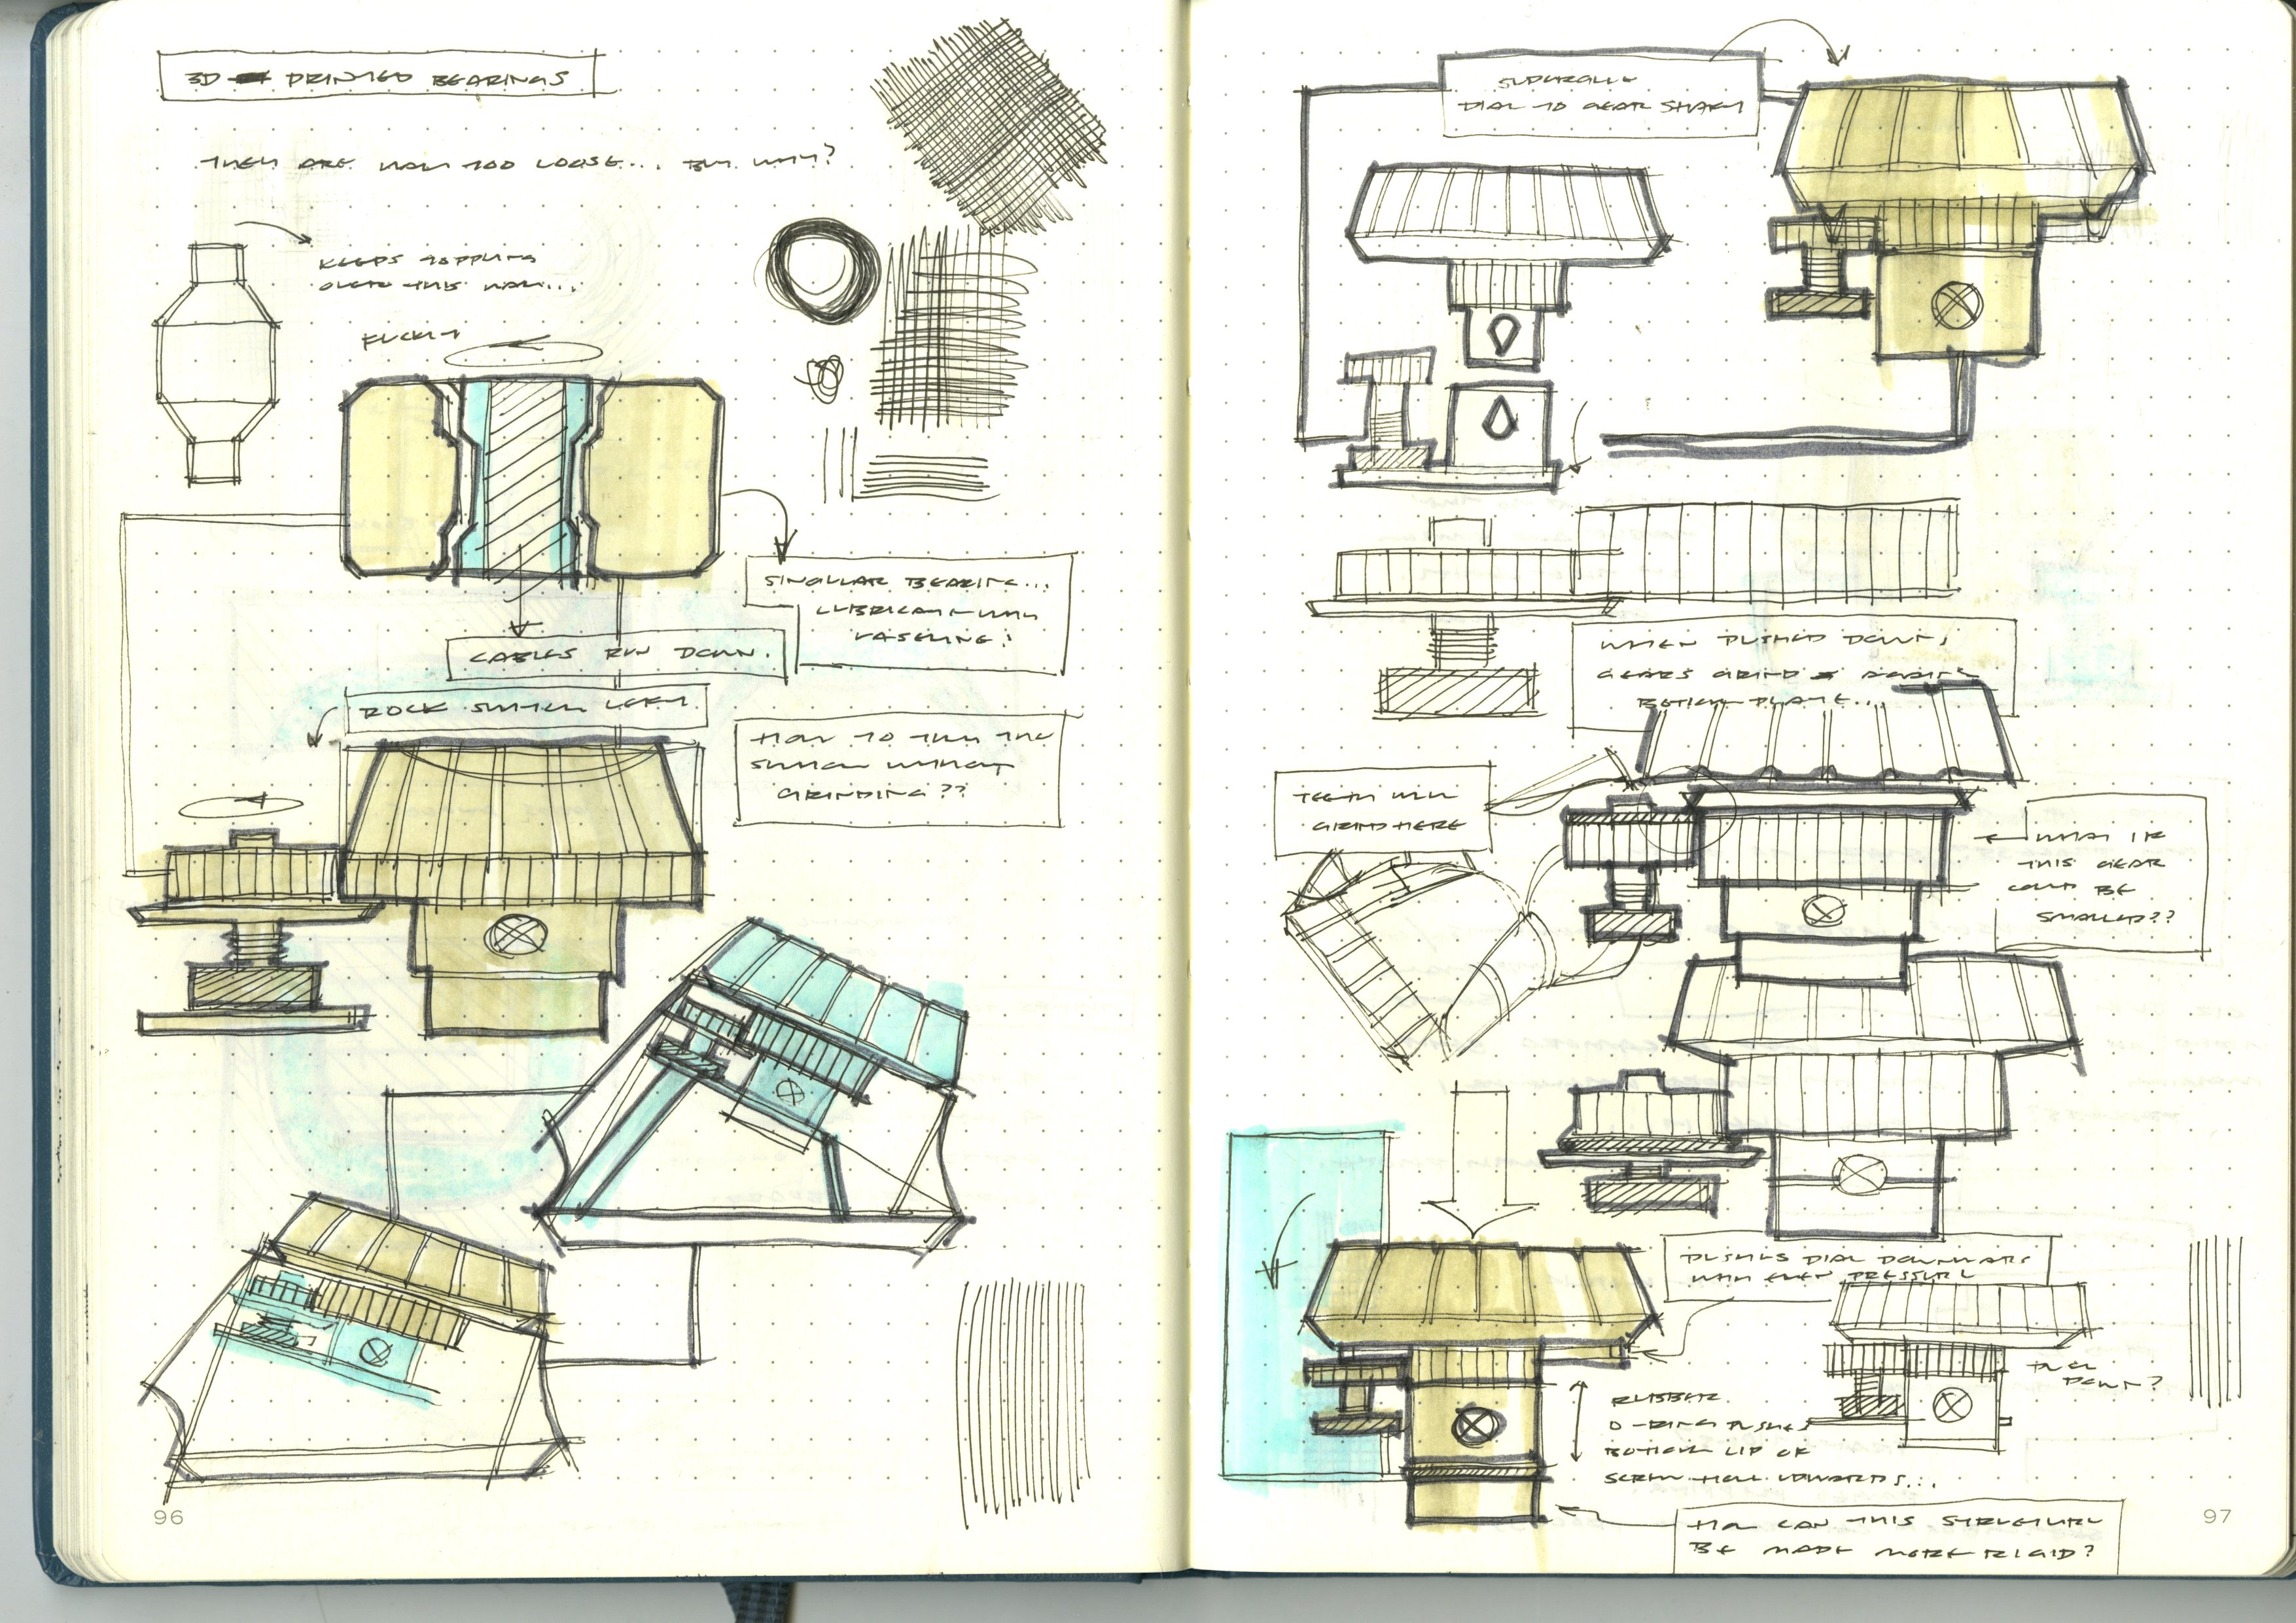 3D PRINTED BEARINGS
THEY ARE NOW TOO LOOSE... BUT WHY?
KEEPS TOPPLING
OVER THIS WAY...
FUCK!!
SINGULAR BEARING...
LUBRICATE WITH
VASELINE?
CABLES RUN DOWN.
ROCK SWITCH LEFT.
HOW TO TURN THE
SWITCH WITHOUT
GRINDING??
96
SUPERGLUE
DIAL TO GEAR SHAFT
WHEN PUSHED DOWN,
GEARS GRIND AGAINST
BOTTOM PLATE...
TEETH WILL
GRIND HERE
WHAT IF
THIS GEAR
COULD BE
SMALLER??
PUSHES DIAL DOWNWARDS
WITH EVEN PRESSURE
DOWN?
RUBBER
O-RING PUSHES
BOTTOM LIP OF
SCREW HOLE UPWARDS...
HOW CAN THIS STRUCTURE
BE MADE MORE RIGID?
97